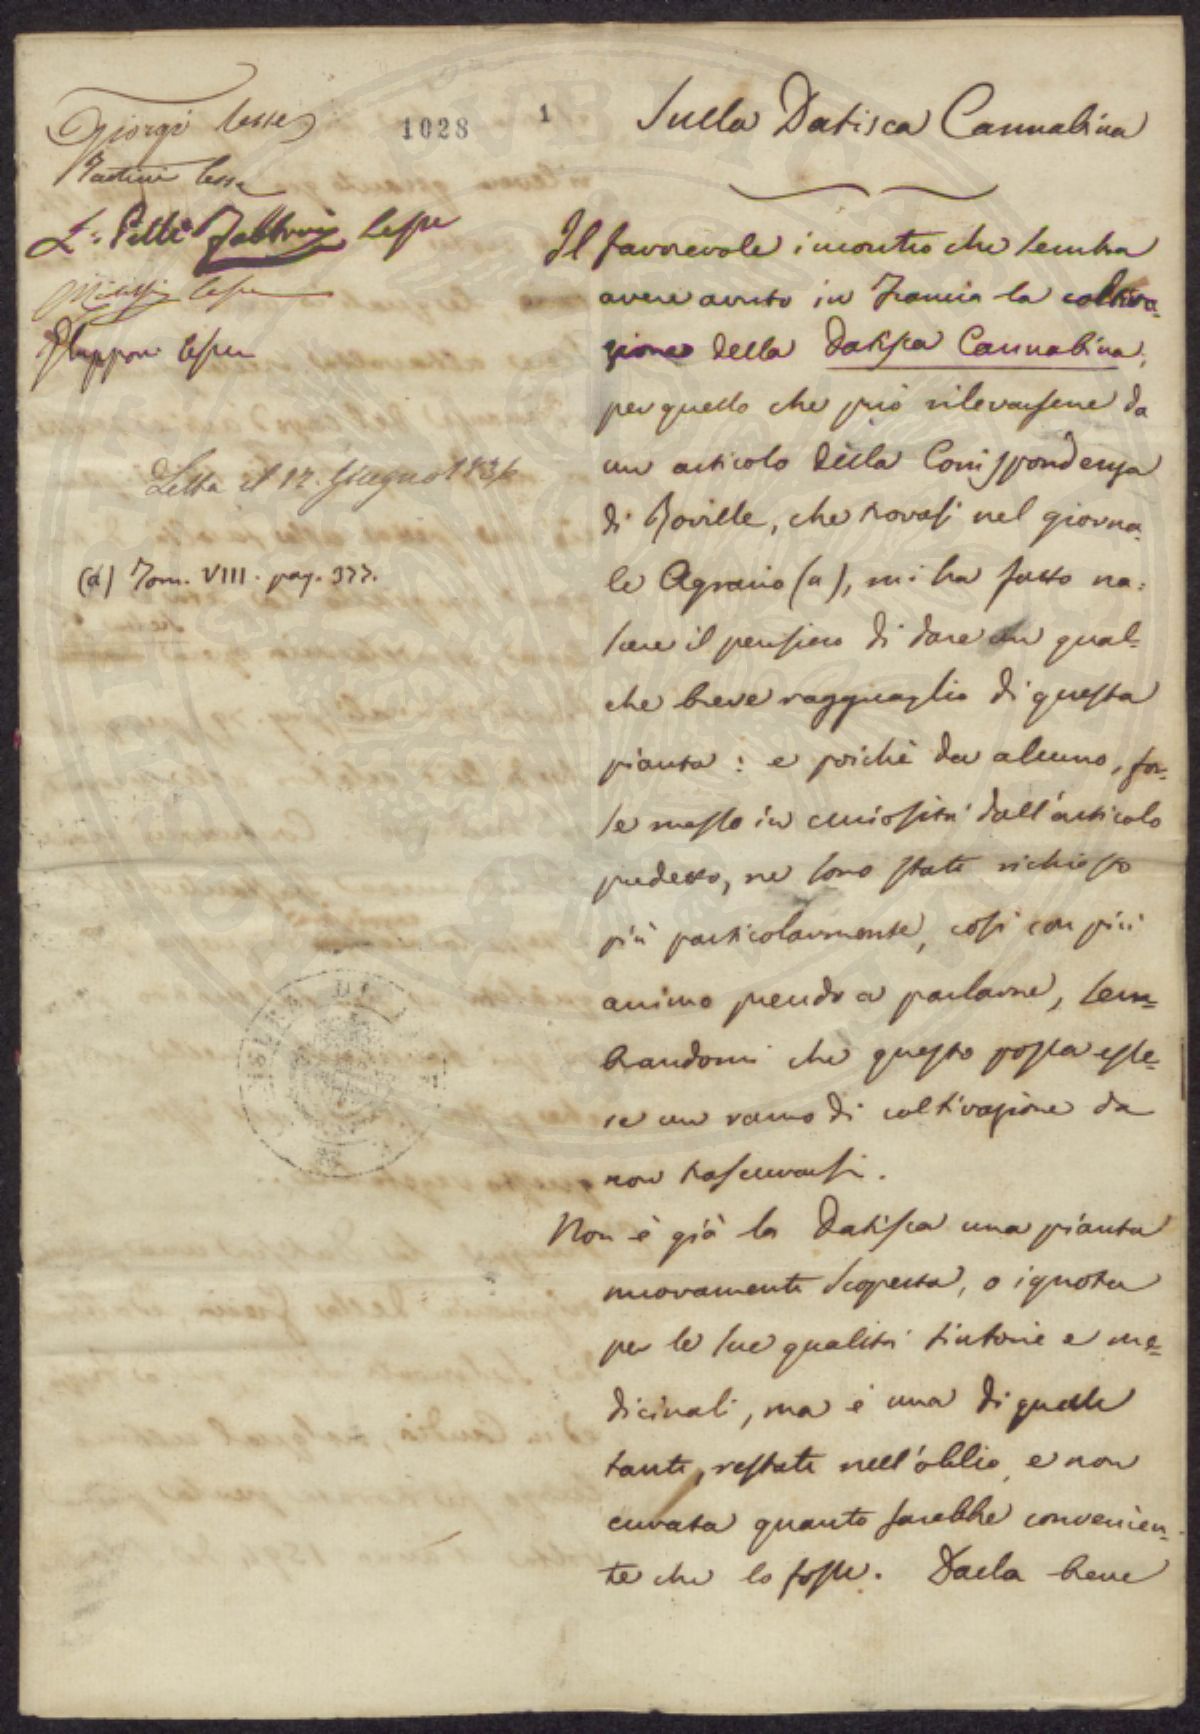 Sulla Datisca Cannabina
1028
1
Giorgi lesse
lesse
L: Pelli Fabbroni lesse
lesse
lesse
Letta il 12. Giugno 183
(a) Tom. VIII. pag. 377.
Il favorevole incontro che sembra
avere avuto in Francia la coltiva-
zione della Datisca Cannabina,
per quello che può rilevarsene da
un articolo della Corrispondenza
di Roville, che trovasi nel giorna-
le Agrario (a), mi ha fatto na-
scere il pensiero di dare un qual-
che breve ragguaglio di questa
pianta: e poichè da alcuno, for-
se messo in curiosità dall'articolo
predetto, ne sono stato richiesto
più particolarmente, così con più
animo prendo a parlarne, sem-
brandomi che questo possa esse-
re un ramo di coltivazione da
non trascurarsi.
Non è già la Datisca una pianta
nuovamente scoperta, o ignota
per le sue qualità tintorie e me-
dicinali, ma è una di quelle
tante, restate nell'oblio, e non
curata quanto sarebbe convenien-
te che lo fosse. Dalla breve